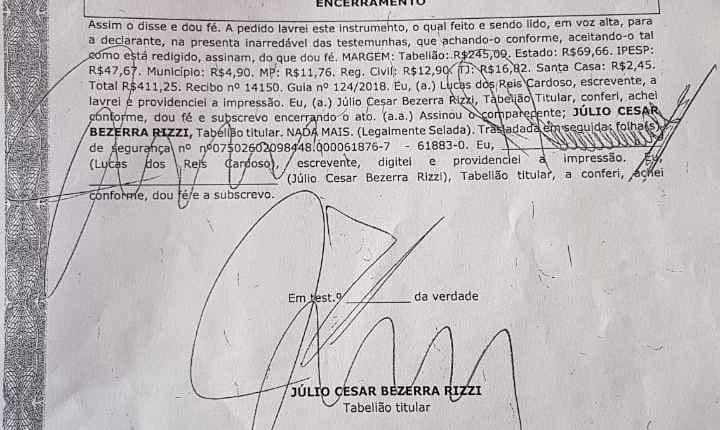 ENCERRAMENTO
Assim o disse e dou fé. A pedido lavrei este instrumento, o qual feito e sendo lido, em voz alta, para
a declarante, na presenta inarredável das testemunhas, que achando-o conforme, aceitando-o tal
como está redigido, assinam, do que dou fé. MARGEM: Tabelião: R$245,09. Estado: R$69,66. IPESP:
R$47,67. Município: R$4,90. MP: R$11,76. Reg. Civil: R$12,90. TJ: R$16,82. Santa Casa: R$2,45.
Total R$411,25. Recibo nº 14150. Guia nº 124/2018. Eu, (a.) Lucas dos Reis Cardoso, escrevente, a
lavrei e providenciei a impressão. Eu, (a.) Júlio Cesar Bezerra Rizzi, Tabelião Titular, conferi, achei
conforme, dou fé e subscrevo encerrando o ato. (a.a.) Assinou o comparecente; JÚLIO CESAR
BEZERRA RIZZI, Tabelião titular. NADA MAIS. (Legalmente Selada). Trasladada em seguida; folha(s)
de segurança nº nº07502602098448.000061876-7 - 61883-0. Eu,
(Lucas dos Reis Cardoso), escrevente, digitei e providenciei a impressão. Eu,
(Júlio Cesar Bezerra Rizzi), Tabelião titular, a conferi, achei
conforme, dou fé e a subscrevo.
Em test.º da verdade
JÚLIO CESAR BEZERRA RIZZI
Tabelião titular